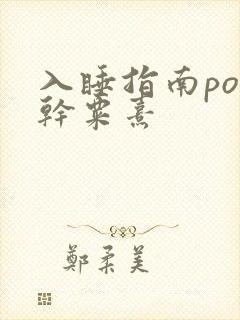 入睡指南po
幹粟熹
鄭柔美